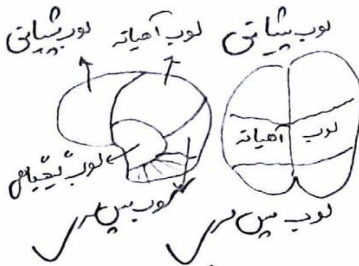 لوب پیشانی لوب آهیانه لوب پیشانی
لوب آهیانه
لوب گیجگاهی
لوب پس سری لوب پس سری